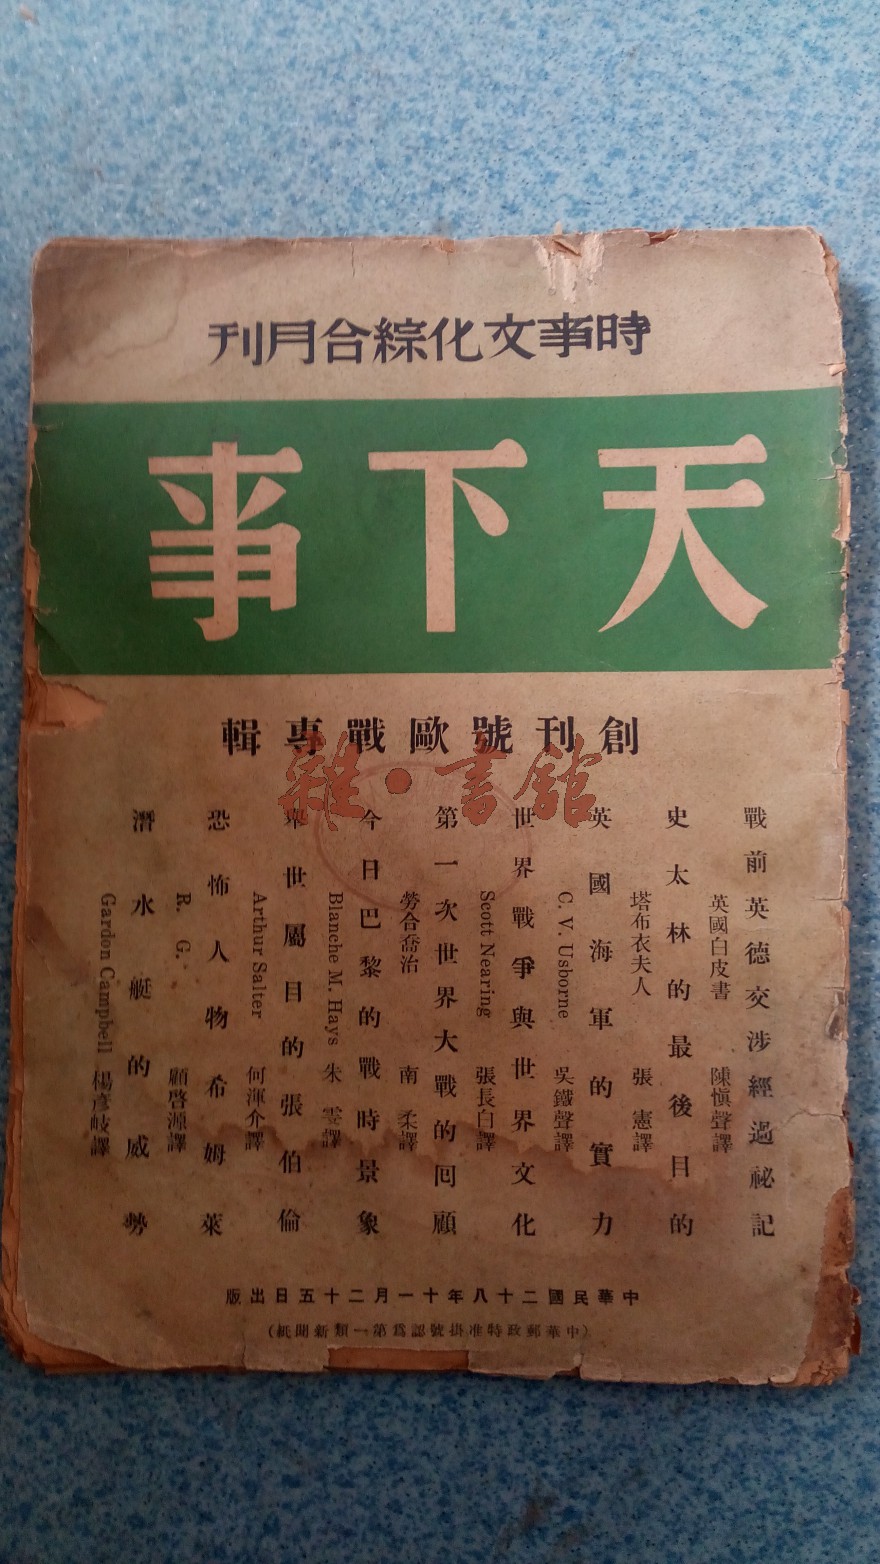 時事文化綜合月刊
天下事
創刊號歐戰專輯
雜·書館
戰前英德交涉經過祕記
英國白皮書 陳愼聲譯
史太林的最後目的
塔布衣夫人 張憲譯
英國海軍的實力
C. V. Usborne 吳鐵聲譯
世界戰爭與世界文化
Scott Nearing 張長白譯
第一次世界大戰的囘顧
勞合喬治 南柔譯
今日巴黎的戰時景象
Blanche M. Hays 朱雯譯
舉世屬目的張伯倫
Arthur Salter 何渾介譯
恐怖人物希姆萊
R. G. 顧啓源譯
潛水艇的威勢
Gardon Campbell 楊彥岐譯
中華民國二十八年十一月二十五日出版
(中華郵政特准掛號認爲第一類新聞紙)